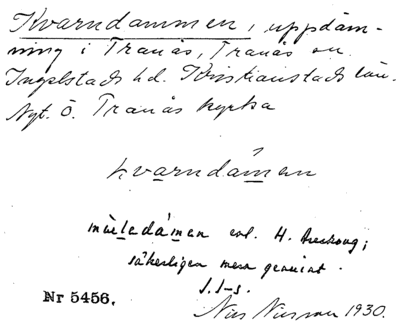 Kvarndammen, uppdäm-
ning i Tranås, Tranås sn.
Ingelstads hd. Kristianstads län.
Nyt. Ö. Tranås kyrka
kvarndámen
mø̀lledámen enl. H.
säkerligen mera genuint.
J. J-s.
Nr 5456.
Nils 1930.